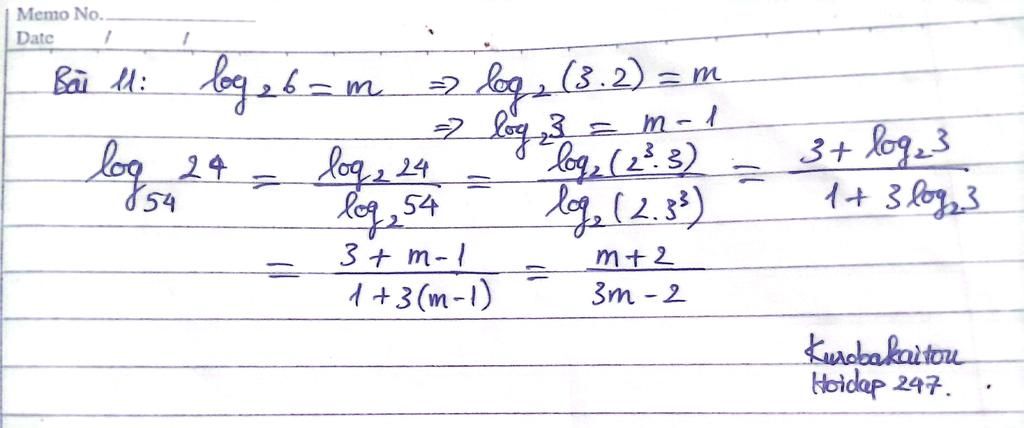 Memo No.
Date / /
Bài 11: log₂6 = m ⇒ log₂(3.2) = m
⇒ log₂3 = m - 1
log₅₄ 24 = log₂24 / log₂54 = log₂(2³.3) / log₂(2.3³) = 3 + log₂3 / 1 + 3log₂3
= 3 + m - 1 / 1 + 3(m - 1) = m + 2 / 3m - 2
Kurobakaitou
Hoidap 247.